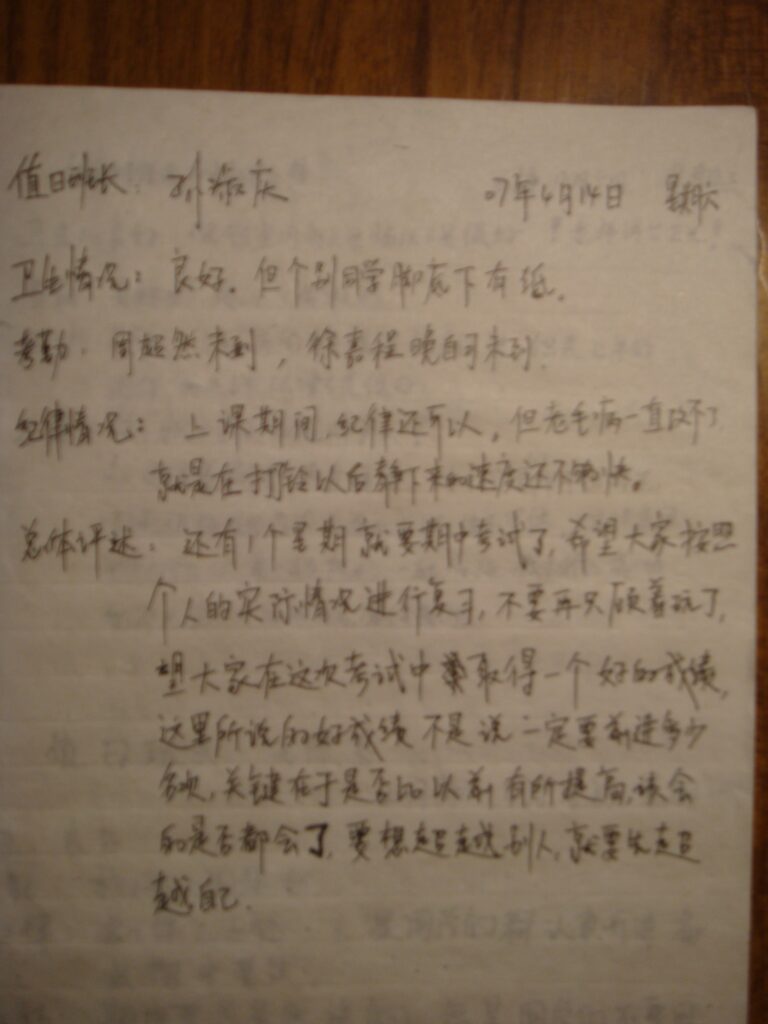 值日班长：孙淑庆 07年4月14日 星期六
卫生情况：良好。但个别同学脚底下有纸。
考勤：周超然未到，徐嘉程晚自习未到.
纪律情况：上课期间，纪律还可以，但老毛病一直改不了
就是在打铃以后静下来的速度还不够快。
总体评述：还有1个星期就要期中考试了，希望大家按照
个人的实际情况进行复习，不要再只顾着玩了，
望大家在这次考试中取得一个好的成绩，
这里所说的好成绩不是说一定要前进多少
名次，关键在于是否比以前有所提高，该会
的是否都会了，要想超越别人，就要先超
越自己.